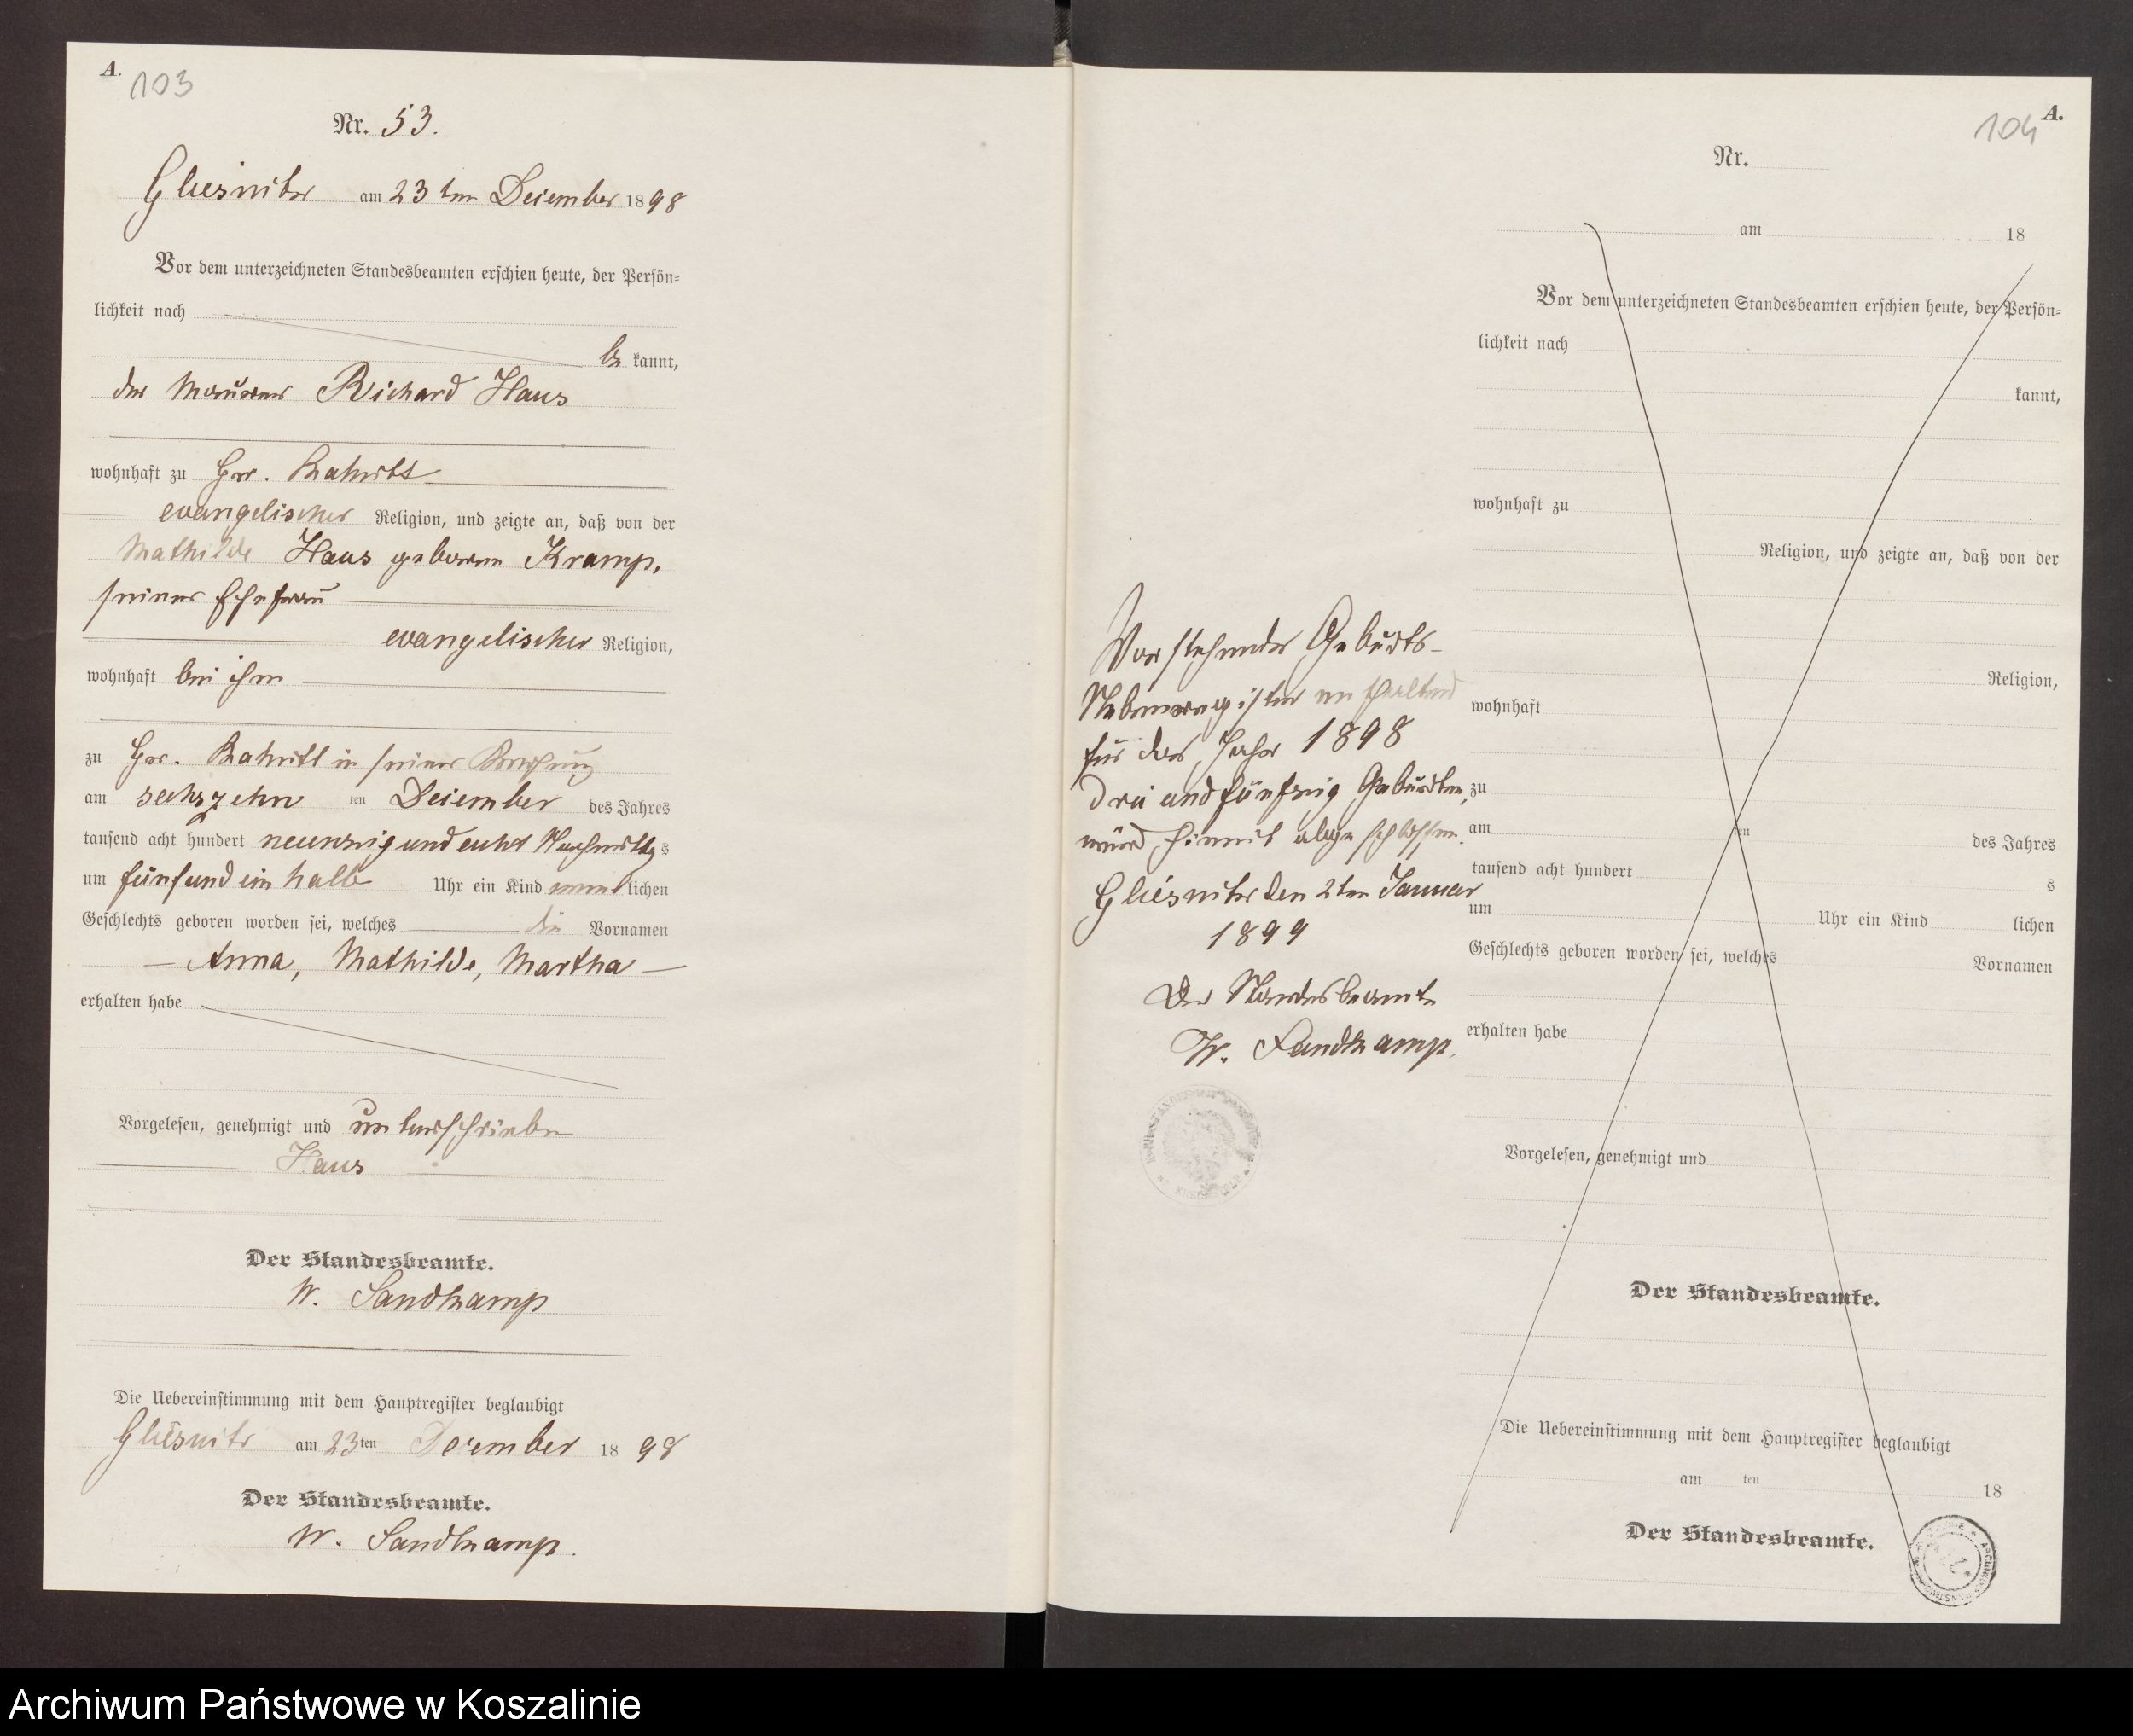 A. 103
Nr. 53.
Gliesnitz am 23ten Dezember 1898
Vor dem unterzeichneten Standesbeamten erschien heute, der Persön=
lichkeit nach
be kannt,
der Maurer Richard Haus
wohnhaft zu Gr.
evangelischer Religion, und zeigte an, daß von der
Mathilde Haus geborene Kramp,
seiner Ehefrau
evangelischer Religion,
wohnhaft bei ihm
zu Gr. in seiner Wohnung
am sechszehn ten Dezember des Jahres
tausend acht hundert neunzig und acht Nachmittags
um fünf und ein halb Uhr ein Kind weiblichen
Geschlechts geboren worden sei, welches die Vornamen
— Anna, Mathilde, Martha —
erhalten habe
Vorgelesen, genehmigt und unterschrieben
Haus
Der Standesbeamte.
W. Sandkamp
Die Uebereinstimmung mit dem Hauptregister beglaubigt
Gliesnitz am 23ten Dezember 1898
Der Standesbeamte.
W. Sandkamp.
Vorstehendes Geburts-
Nebenregister enthaltend
für das Jahr 1898
drei und fünfzig Geburten,
wird hiermit abgeschlossen.
Gliesnitz den 2ten Januar
1899
Der Standesbeamte
W. Sandkamp.
104 A.
Nr.
am 18
Vor dem unterzeichneten Standesbeamten erschien heute, der Persön=
lichkeit nach
kannt,
wohnhaft zu
Religion, und zeigte an, daß von der
Religion,
wohnhaft
zu
am ten des Jahres
tausend acht hundert s
um Uhr ein Kind lichen
Geschlechts geboren worden sei, welches Vornamen
erhalten habe
Vorgelesen, genehmigt und
Der Standesbeamte.
Die Uebereinstimmung mit dem Hauptregister beglaubigt
am ten 18
Der Standesbeamte.
Archiwum Państwowe w Koszalinie